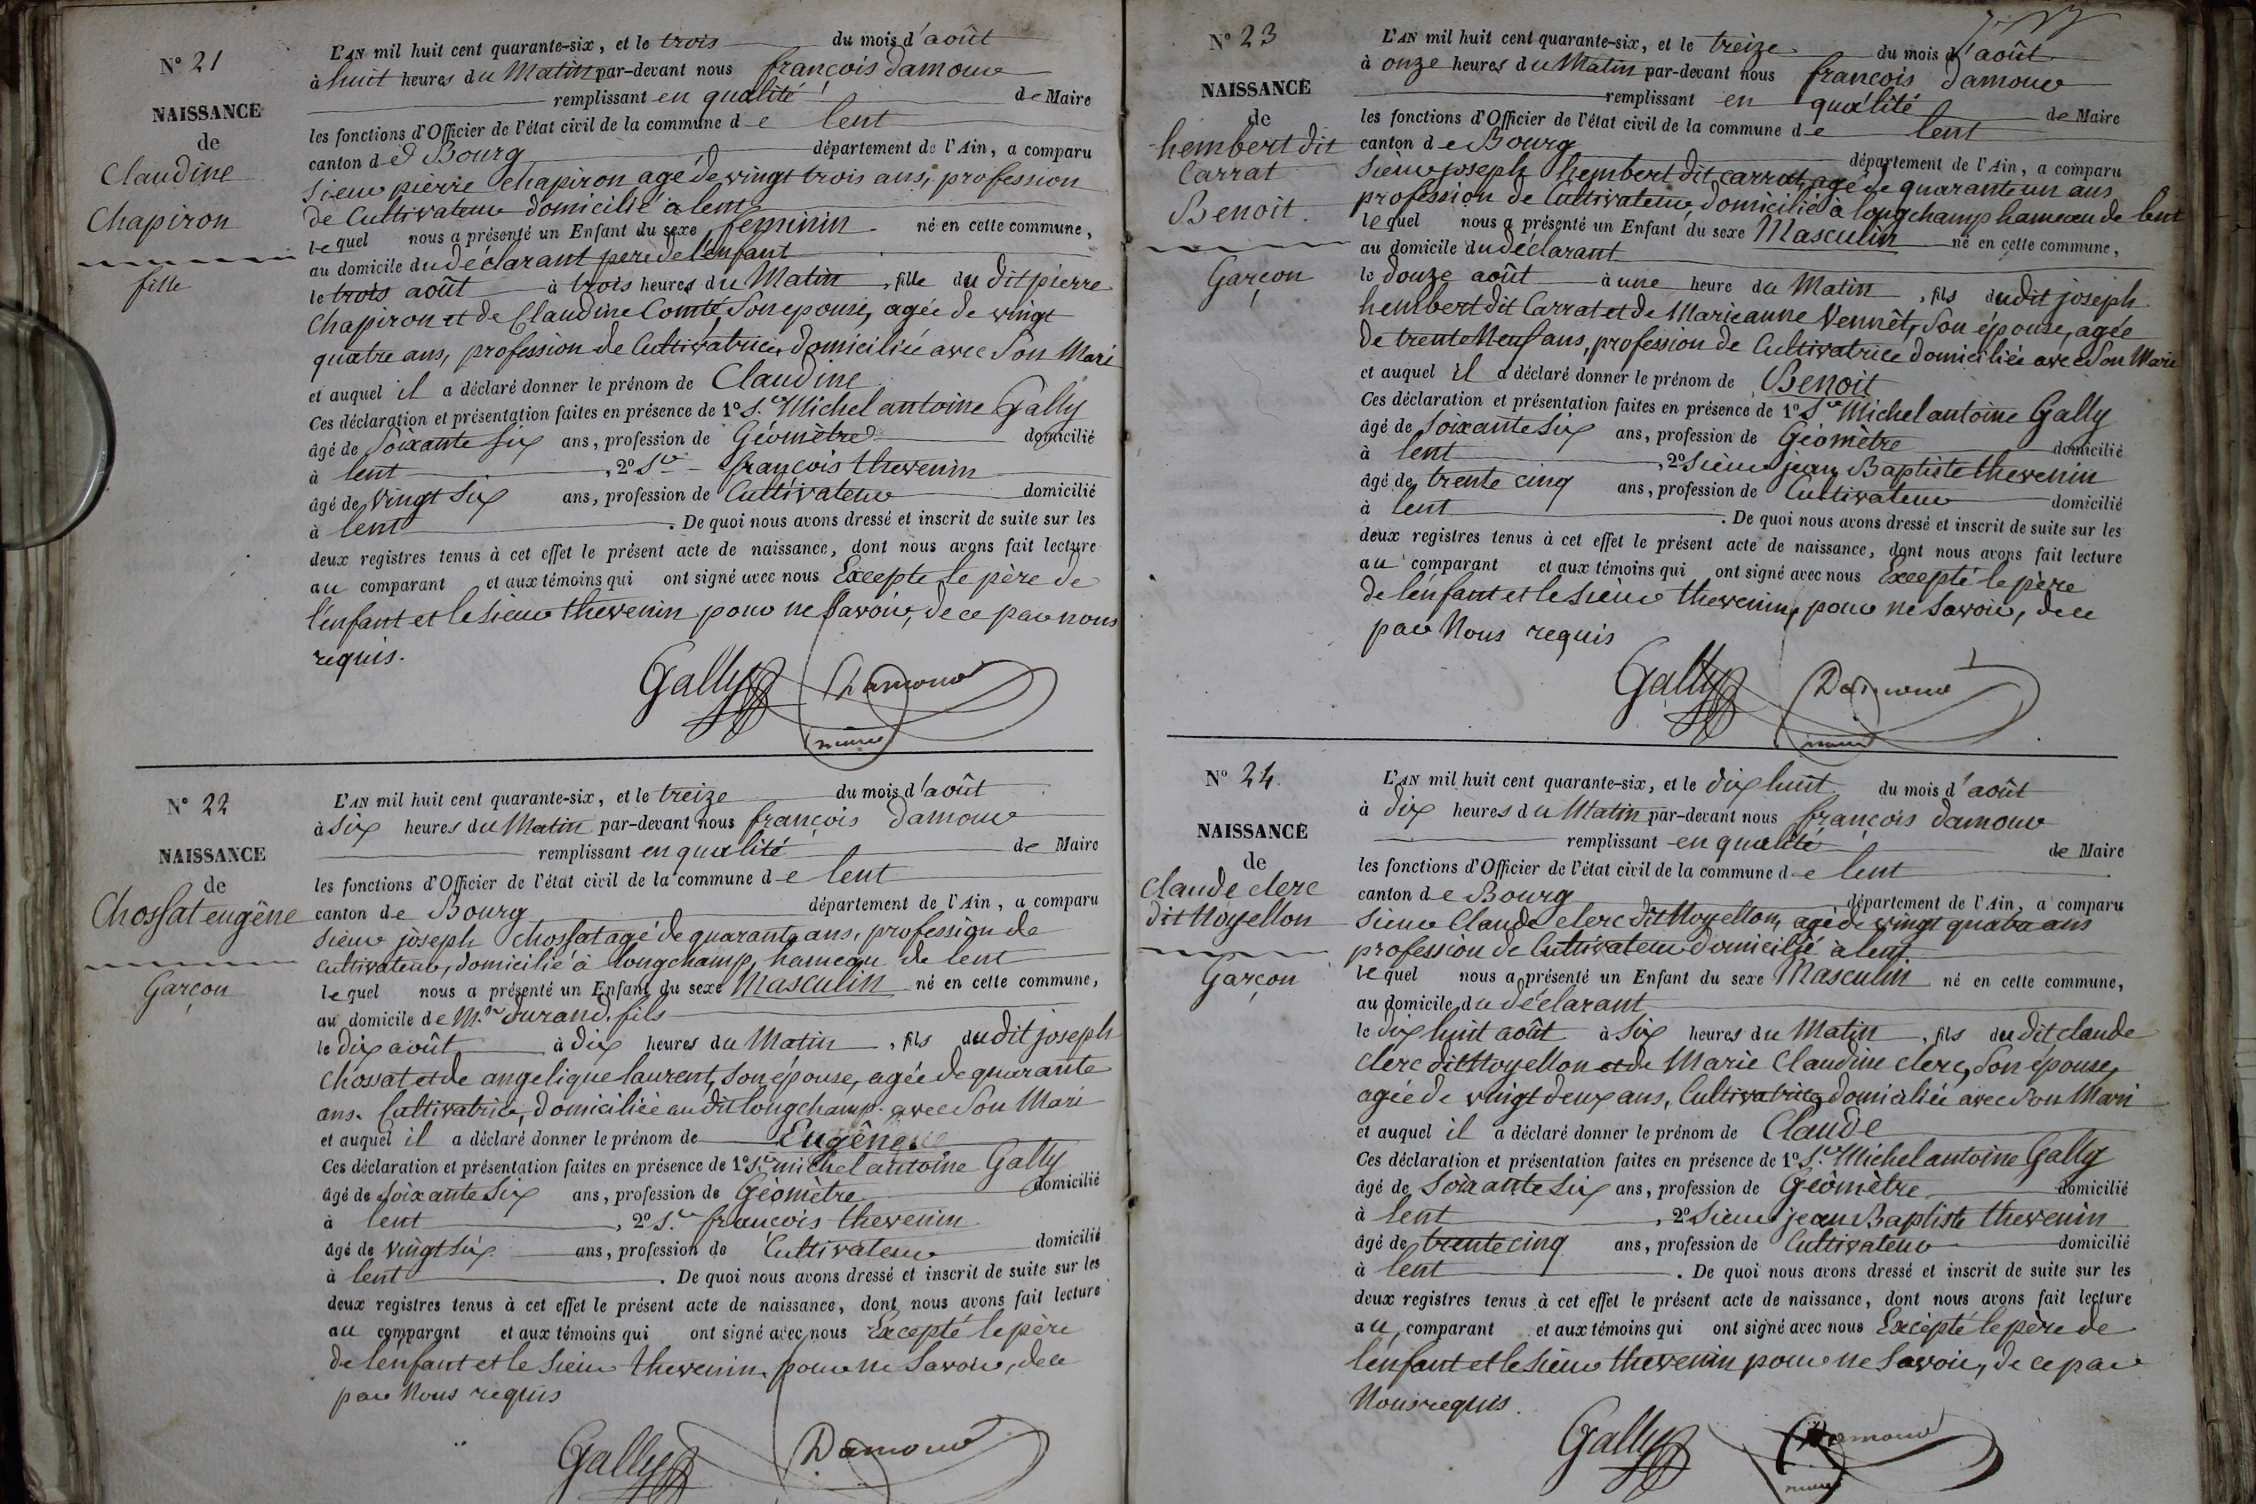 N° 21
NAISSANCE
de
Claudine
Chapiron
fille
L'AN mil huit cent quarante-six, et le trois du mois d'août
à huit heures du Matin par-devant nous françois damour
remplissant en qualité de Maire
les fonctions d'Officier de l'état civil de la commune de lent
canton de Bourg département de l'Ain, a comparu
Sieur pierre chapiron agé de vingt trois ans, profession
de Cultivateur domicilié à lent
lequel nous a présenté un Enfant du sexe feminin né en cette commune,
au domicile du déclarant père de l'enfant
le trois août à trois heures du Matin, fille du dit pierre
Chapiron et de Claudine Comte, Son epouse, agée de vingt
quatre ans, profession de Cultivatrice, domiciliée avec Son Mari
et auquel il a déclaré donner le prénom de Claudine
Ces déclaration et présentation faites en présence de 1° S.r Michel antoine Gally
âgé de Soixante Six ans, profession de Géomètre domicilié
à lent, 2° Sr françois thevenin
âgé de Vingt Six ans, profession de Cultivateur domicilié
à lent. De quoi nous avons dressé et inscrit de suite sur les
deux registres tenus à cet effet le présent acte de naissance, dont nous avons fait lecture
au comparant et aux témoins qui ont signé avec nous Excepté le père de
l'enfant et le Sieur thevenin pour ne Savoir, de ce par nous
requis.
Gally Damour
maire
N° 22
NAISSANCE
de
Chossat eugêne
Garçon
L'AN mil huit cent quarante-six, et le treize du mois d'août
à Six heures du Matin par-devant nous françois damour
remplissant en qualité de Maire
les fonctions d'Officier de l'état civil de la commune de lent
canton de Bourg département de l'Ain, a comparu
Sieur joseph chossat agé de quarante ans, profession de
Cultivateur, domicilié à longchamp, hameau de lent
lequel nous a présenté un Enfant du sexe Masculin né en cette commune,
au domicile de M.r durand fils
le dix août à dix heures du Matin, fils du dit joseph
Chossat et de angelique laurent, Son épouse, agée de quarante
ans. Cultivatrice, domiciliée au dit longchamp avec Son Mari
et auquel il a déclaré donner le prénom de Eugêne
Ces déclaration et présentation faites en présence de 1° S.r michel antoine Gally
âgé de Soixante Six ans, profession de Géomètre domicilié
à lent, 2° S.r françois thevenin
âgé de Vingt Six ans, profession de Cultivateur domicilié
à lent. De quoi nous avons dressé et inscrit de suite sur les
deux registres tenus à cet effet le présent acte de naissance, dont nous avons fait lecture
au comparant et aux témoins qui ont signé avec nous Excepté le père
de l'enfant et le Sieur thevenin pour ne Savoir, de ce
par Nous requis
Gally Damour
N° 23
NAISSANCE
de
hembert dit
Carrat
Benoit.
Garçon
L'AN mil huit cent quarante-six, et le treize du mois d'août
à onze heures du Matin par-devant nous françois damour
remplissant en qualité de Maire
les fonctions d'Officier de l'état civil de la commune de lent
canton de Bourg département de l'Ain, a comparu
Sieur joseph hembert dit carrat, agé de quarante un ans
profession de Cultivateur, domicilié à longchamp hameau de lent
lequel nous a présenté un Enfant du sexe Masculin né en cette commune,
au domicile du déclarant
le douze août à une heure du Matin, fils du dit joseph
hembert dit Carrat et de Marieanne Vennêt, Son épouse, agée
de trente Neuf ans, profession de Cultivatrice domiciliée avec Son Mari
et auquel il a déclaré donner le prénom de Benoit
Ces déclaration et présentation faites en présence de 1° Sr Michel antoine Gally
âgé de Soixante Six ans, profession de Géomètre domicilié
à lent, 2° Sieur jean Baptiste thevenin
âgé de trente cinq ans, profession de Cultivateur domicilié
à lent. De quoi nous avons dressé et inscrit de suite sur les
deux registres tenus à cet effet le présent acte de naissance, dont nous avons fait lecture
au comparant et aux témoins qui ont signé avec nous Excepté le père
de l'enfant et le Sieur thevenin, pour ne Savoir, de ce
par Nous requis
Gally Damour
maire
N° 24.
NAISSANCE
de
Claude clerc
dit Noyellon
Garçon
L'AN mil huit cent quarante-six, et le dix huit du mois d'août
à dix heures du Matin par-devant nous françois damour
remplissant en qualité de Maire
les fonctions d'Officier de l'état civil de la commune de lent
canton de Bourg département de l'Ain, a comparu
Sieur Claude clerc dit Noyellon, agé de vingt quatre ans
profession de Cultivateur domicilié à lent
lequel nous a présenté un Enfant du sexe Masculin né en cette commune,
au domicile du déclarant
le dix huit août à Six heures du Matin, fils du dit claude
clerc dit Noyellon et de Marie Claudine clerc, Son épouse,
agée de vingt deux ans, Cultivatrice, domiciliée avec Son Mari
et auquel il a déclaré donner le prénom de Claude
Ces déclaration et présentation faites en présence de 1° S.r Michel antoine Gally
âgé de Soixante Six ans, profession de Géomètre domicilié
à lent, 2° Sieur jean Baptiste thevenin
âgé de trente cinq ans, profession de Cultivateur domicilié
à lent. De quoi nous avons dressé et inscrit de suite sur les
deux registres tenus à cet effet le présent acte de naissance, dont nous avons fait lecture
au comparant et aux témoins qui ont signé avec nous Excepté le père de
l'enfant et le Sieur thevenin pour ne Savoir, de ce par
Nous requis.
Gally Damour
maire